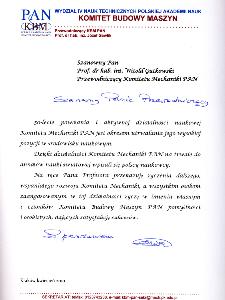 PAN
KBM
WYDZIAŁ IV NAUK TECHNICZNYCH POLSKIEJ AKADEMII NAUK
KOMITET BUDOWY MASZYN
Przewodniczący KBM PAN
Prof. dr hab. inż. Józef
Szanowny Pan
Prof. dr hab. inż. Witold Gutkowski
Przewodniczący Komitetu Mechaniki PAN
Szanowny Panie Przewodniczący
powstania i aktywnej działalności naukowej
Komitetu Mechaniki PAN jest okresem utrwalania jego wysokiej
pozycji w środowisku naukowym.
Dzięki działalności Komitetu Mechaniki PAN na trwałe do
nauki światowej wpisał się polscy naukowcy.
Na ręce Pana Profesora przekazuję życzenia dalszego,
wspaniałego rozwoju Komitetu Mechaniki, a wszystkim osobom
zaangażowanym w tej działalności życzę w imieniu własnym
i członków Komitetu Budowy Maszyn PAN pomyślności
i osobistych, dających satysfakcję sukcesów.
Z poważaniem